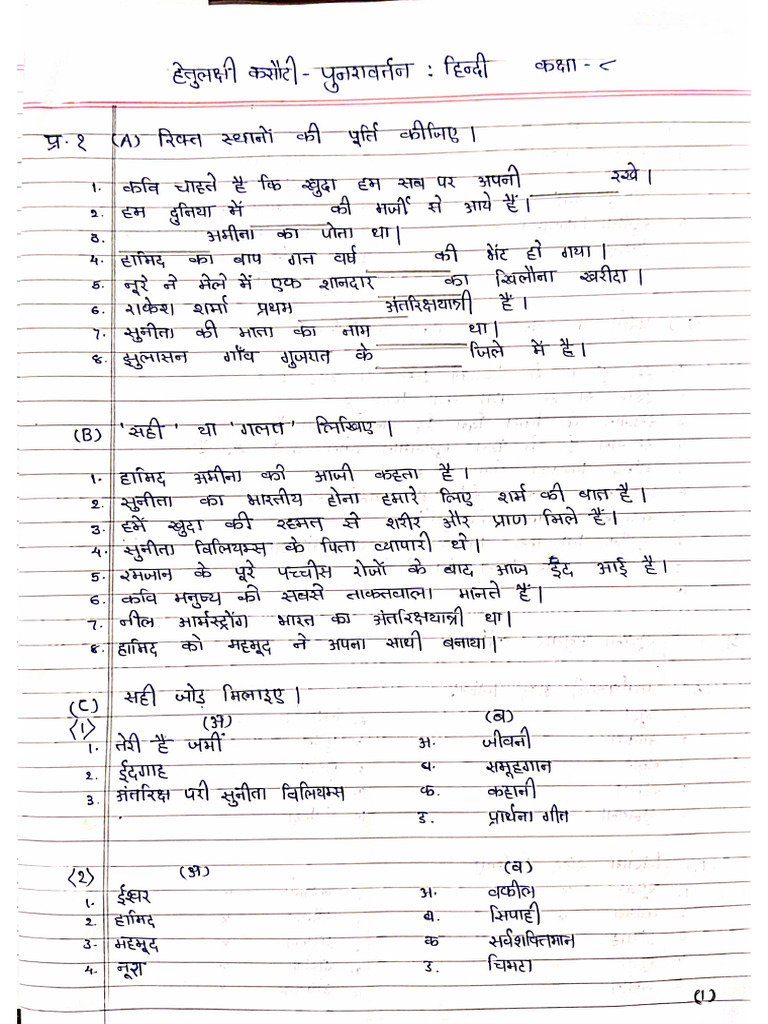 हेतुलक्षी कसौटी - पुनरावर्तन : हिन्दी कक्षा - ८
प्र. १ (A) रिक्त स्थानों की पूर्ति कीजिए ।
1. कवि चाहते है कि खुदा हम सब पर अपनी ________ रखे ।
2. हम दुनिया में ________ की मर्जी से आये हैं ।
3. ________ अमीना का पोता था ।
4. हामिद का बाप गत वर्ष ________ की भेंट हो गया ।
5. नूरे ने मेले में एक शानदार ________ का खिलौना खरीदा ।
6. राकेश शर्मा प्रथम ________ अंतरिक्षयात्री हैं ।
7. सुनीता की माता का नाम ________ था ।
8. झुलासन गाँव गुजरात के ________ जिले में है ।
(B) 'सही' या 'गलत' लिखिए ।
1. हामिद अमीना को आजी कहता है ।
2. सुनीता का भारतीय होना हमारे लिए शर्म की बात है ।
3. हमें खुदा की रहमत से शरीर और प्राण मिले हैं ।
4. सुनीता विलियम्स के पिता व्यापारी थे ।
5. रमजान के पूरे पच्चीस रोजों के बाद आज ईद आई है ।
6. कवि मनुष्य को सबसे ताकतवाला मानते हैं ।
7. नील आर्मस्ट्रोंग भारत का अंतरिक्षयात्री था ।
8. हामिद को महमूद ने अपना साथी बनाया ।
(C) सही जोड़ मिलाइए ।
<1> (अ) (ब)
1. तेरी है जमीं अ. जीवनी
2. ईदगाह ब. समूहगान
3. अंतरिक्ष परी सुनीता विलियम्स क. कहानी
ड. प्रार्थना गीत
<2> (अ) (ब)
1. ईश्वर अ. वकील
2. हामिद ब. सिपाही
3. महमूद क सर्वशक्तिमान
4. नूरा ड. चिमटा
(1)